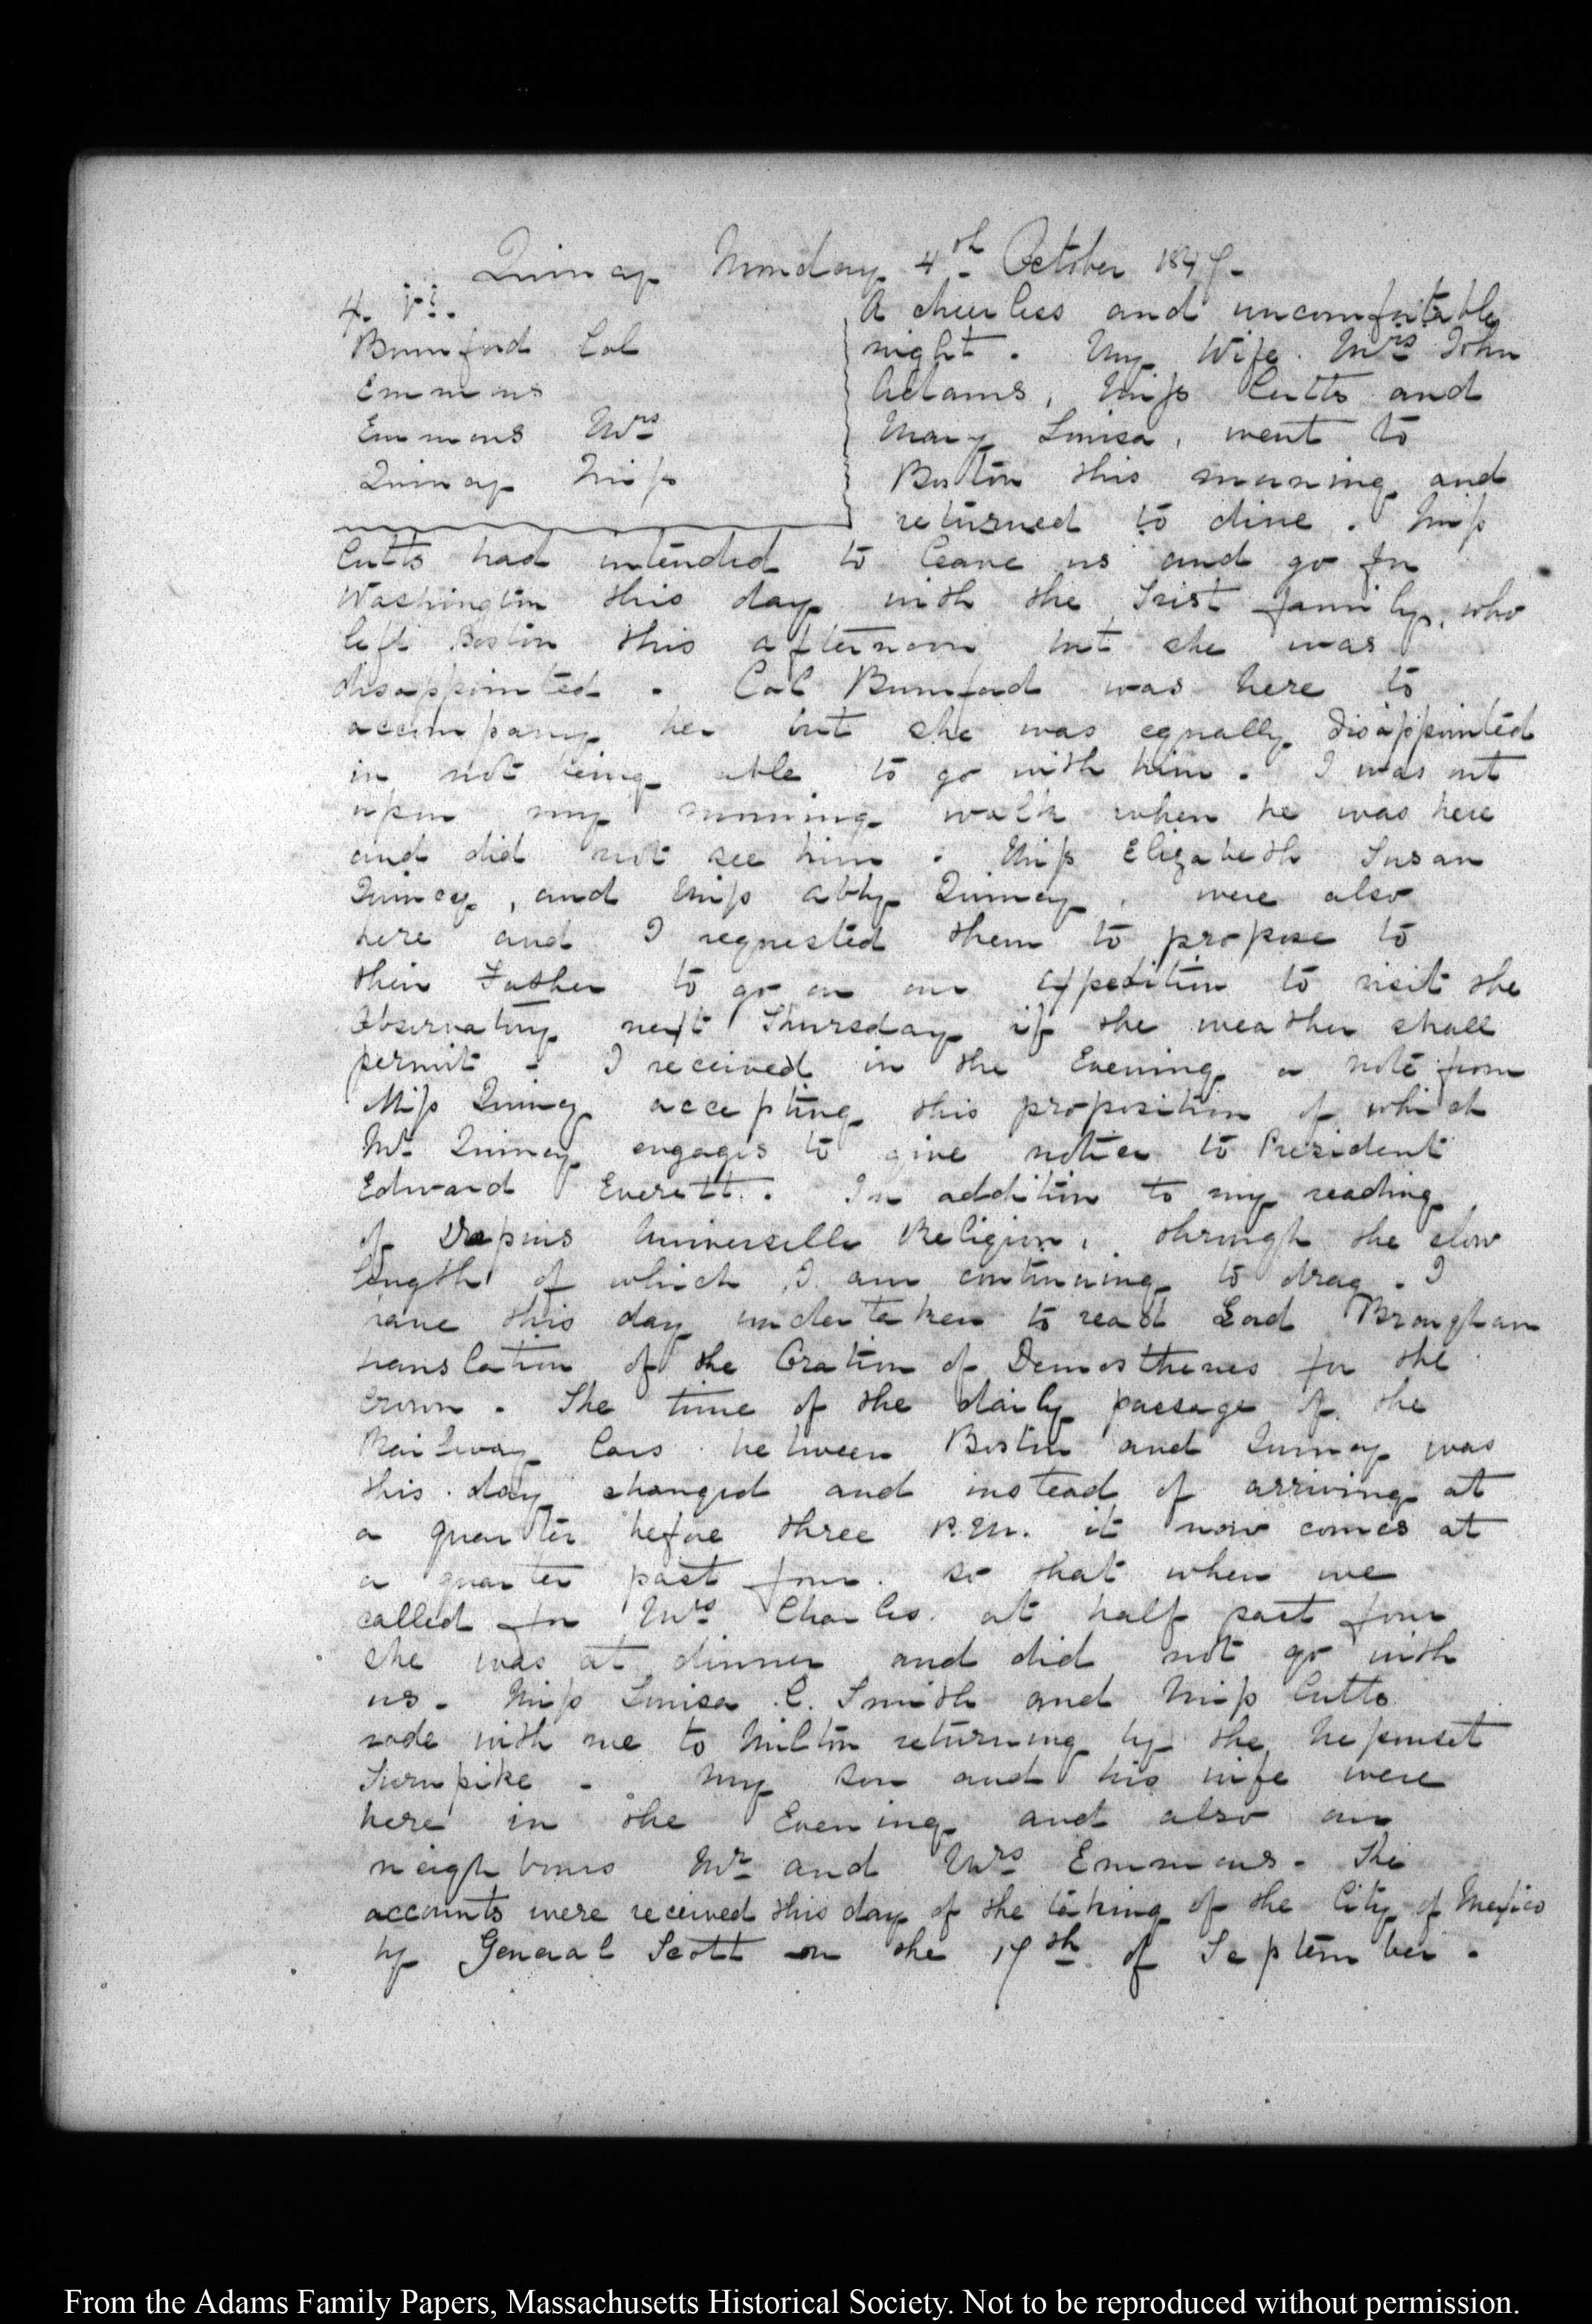 Quincy Monday 4th October 1847.
4. VI.
Bumford Col
Emmons
Emmons Mrs
Quincy Miss
A cheerless and uncomfortable
night. My Wife. Mrs John
Adams, Miss Cutts and
Mary Louisa, went to
Boston this morning and
returned to dine. Miss
Cutts had intended to leave us and go for
Washington this day with the Trist family, who
left Boston this afternoon but she was
disappointed. Col Bumford was here to
accompany her but she was equally disappointed
in not being able to go with him. I was out
upon my morning walk when he was here
and did not see him. Miss Elizabeth Susan
Quincy, and Miss Abby Quincy, were also
here and I requested them to propose to
their Father to go on our expedition to visit the
Observatory next Thursday if the weather shall
permit - I received in the Evening a note from
Miss Quincy accepting this proposition of which
Mr Quincy engages to give notice to President
Edward Everett. In addition to my reading
of Dupuis Universelle Religion, through the slow
length of which I am continuing to drag. I
have this day undertaken to read Lord Brougham
translation of the Oration of Demosthenes for the
crown. The time of the daily passage of the
Railway Cars between Boston and Quincy was
this day changed and instead of arriving at
a quarter before three P.M. it now comes at
a quarter past four. so that when we
called for Mrs Charles. at half past four
she was at dinner and did not go with
us. Miss Louisa C. Smith and Miss Cutts
rode with me to Milton returning by the Neponset
Turnpike - My son and his wife were
here in the Evening and also our
neighbours Mr and Mrs Emmons. The
accounts were received this day of the taking of the City of Mexico
by General Scott on the 17th of September.
From the Adams Family Papers, Massachusetts Historical Society. Not to be reproduced without permission.